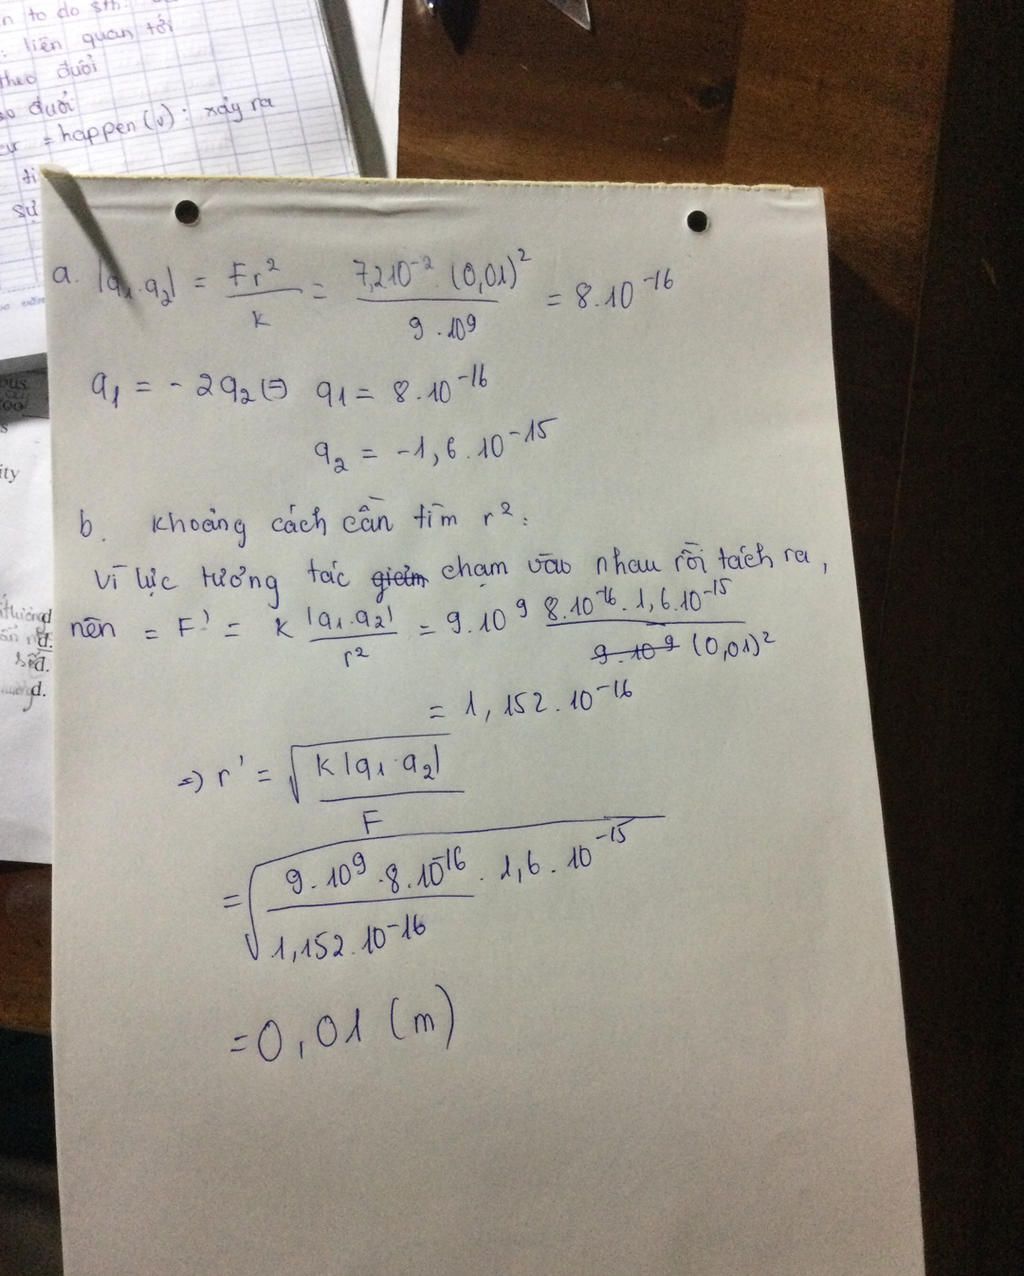 n to do sth:
: liên quan tới
theo đuổi
đuổi
= happen (v) : xảy ra
sự
ity
d.
d.
d.
a. |q₁.q₂| = Fr² / k = 7,2 10⁻² . (0,01)² / 9 . 10⁹ = 8.10⁻¹⁶
q₁ = - 2q₂ (=) q₁ = 8.10⁻¹⁶
q₂ = -1,6.10⁻¹⁵
b. Khoảng cách cần tìm r² :
Vì lực tương tác giảm chạm vào nhau rồi tách ra,
nên = F' = k |q₁.q₂| / r² = 9.10⁹ 8.10⁻¹⁶ . 1,6.10⁻¹⁵ / 9.10⁹ (0,01)²
= 1,152.10⁻¹⁶
=) r' = √ k |q₁.q₂| / F
= √ 9.10⁹.8.10⁻¹⁶ . 1,6.10⁻¹⁵ / 1,152.10⁻¹⁶
= 0,01 (m)